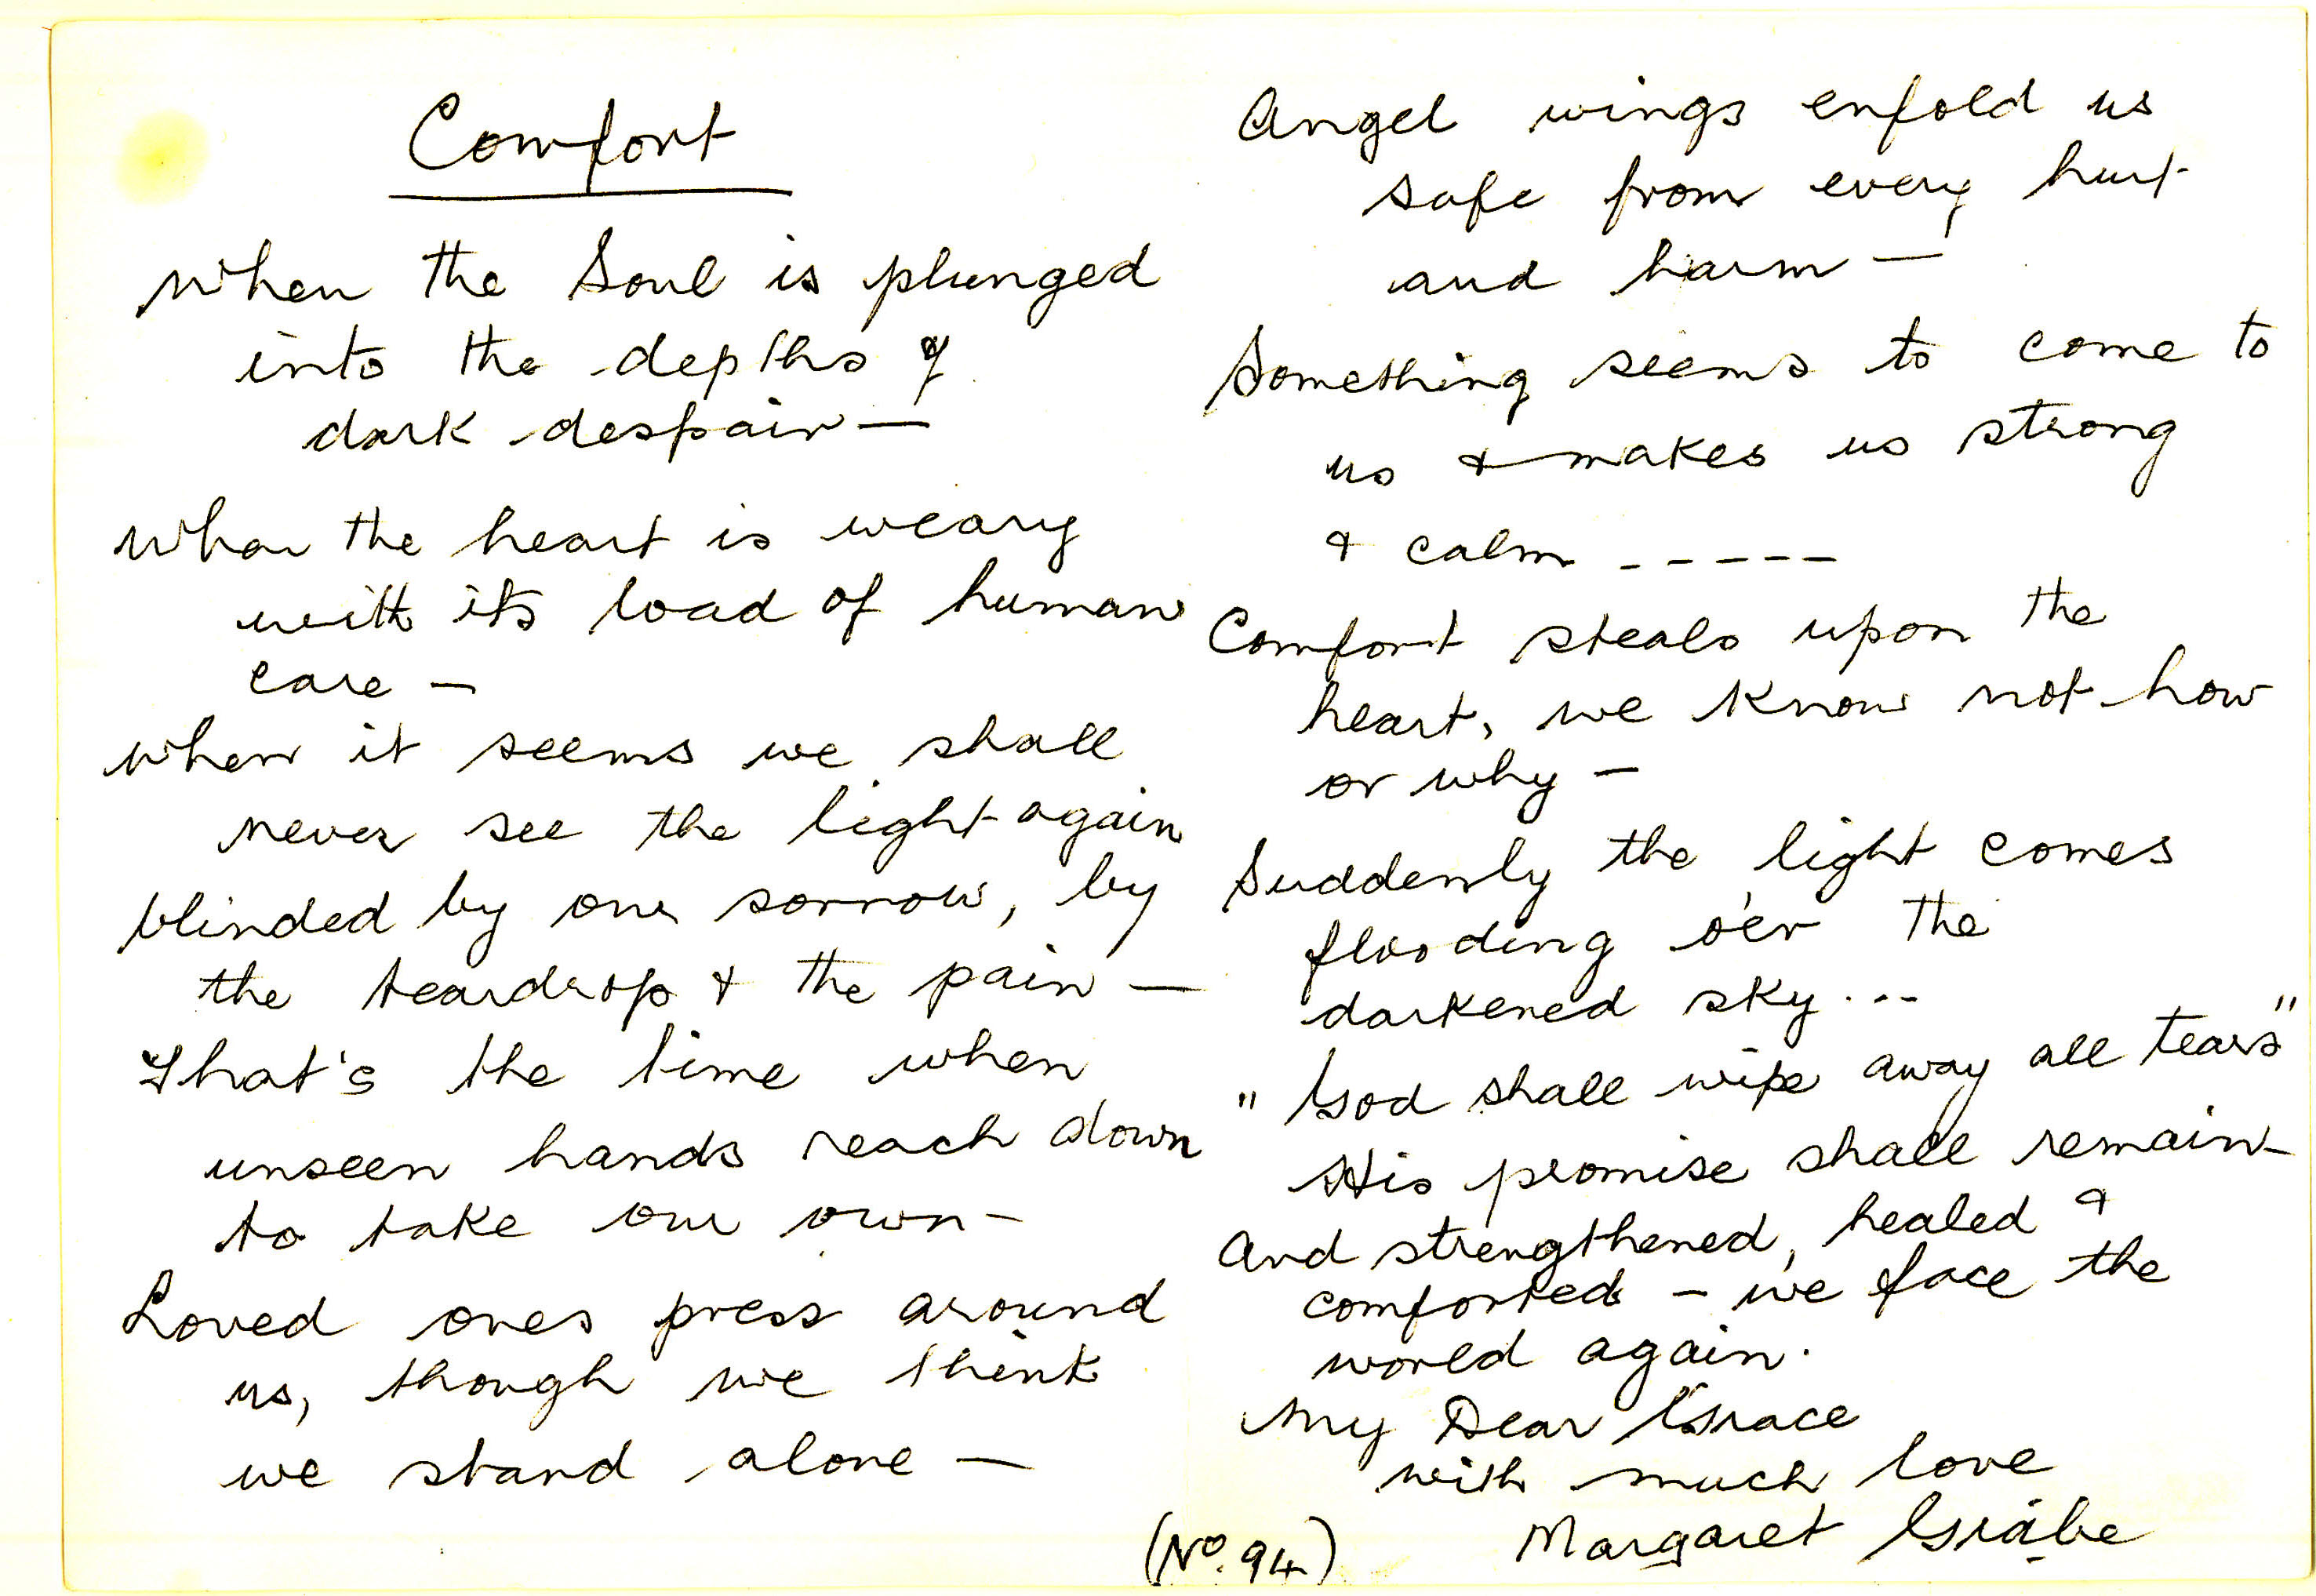 Comfort
When the Soul is plunged
into the depths of
dark despair—
When the heart is weary
with its load of human
care —
When it seems we shall
never see the light again
blinded by our sorrow, by
the teardrop & the pain —
That's the time when
unseen hands reach down
to take our own—
Loved ones press around
us, though we think
we stand alone —
Angel wings enfold us
safe from every hurt
and harm —
Something seems to come to
us & makes us strong
& calm -----
Comfort steals upon the
heart, we know not how
or why —
Suddenly the light comes
flooding o'er the
darkened sky...
"God shall wipe away all tears"
His promise shall remain—
And strengthened, healed &
comforted — we face the
world again.
My Dear Grace
with much love
Margaret Grabe
(No. 94)